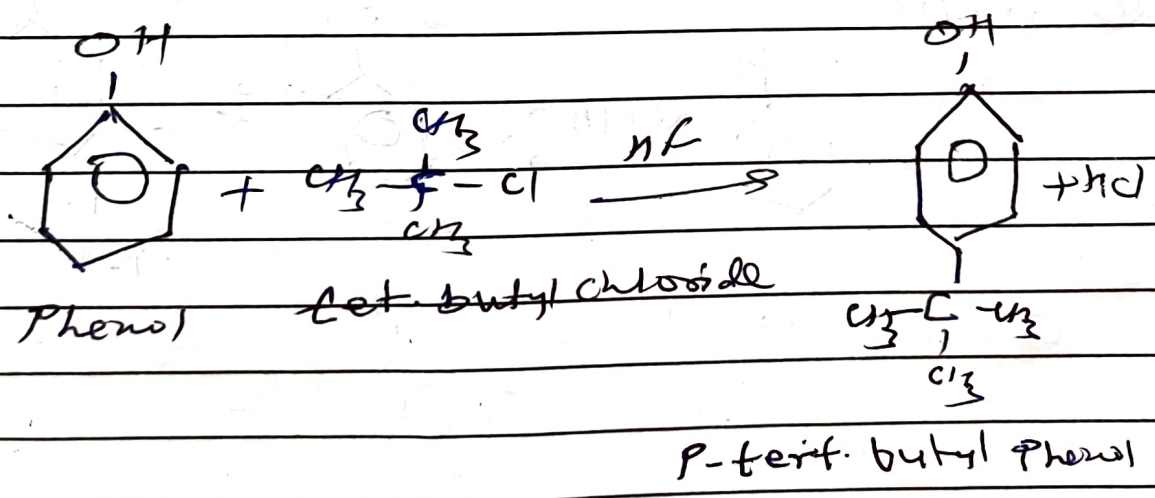 OH OH
CH3
CH3-C-Cl
CH3
+ HF +HCl
Phenol tet. butyl chloride
CH3-C-CH3
CH3
P-tert. butyl Phenol